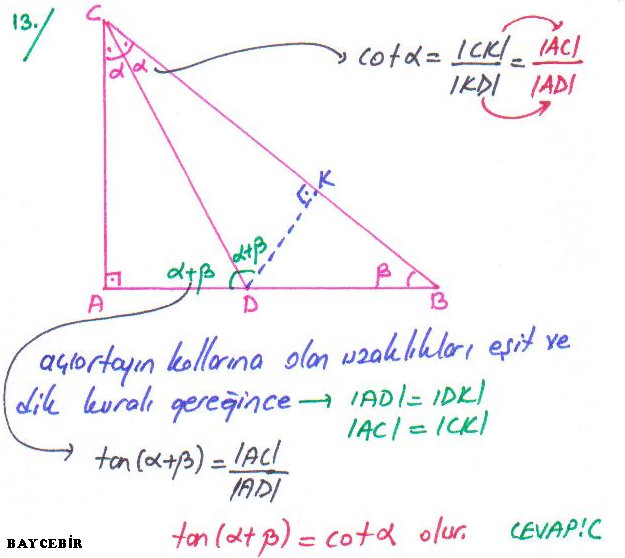 13./
C
α α
cotα = |CK| / |KD| = |AC| / |AD|
K
α+β
α+β
β
A
D
B
açıortayın kollarına olan uzaklıkları eşit ve
dik kuralı gereğince → |AD| = |DK|
|AC| = |CK|
tan(α+β) = |AC| / |AD|
tan(α+β) = cotα olur. CEVAP:C
BAYCEBİR